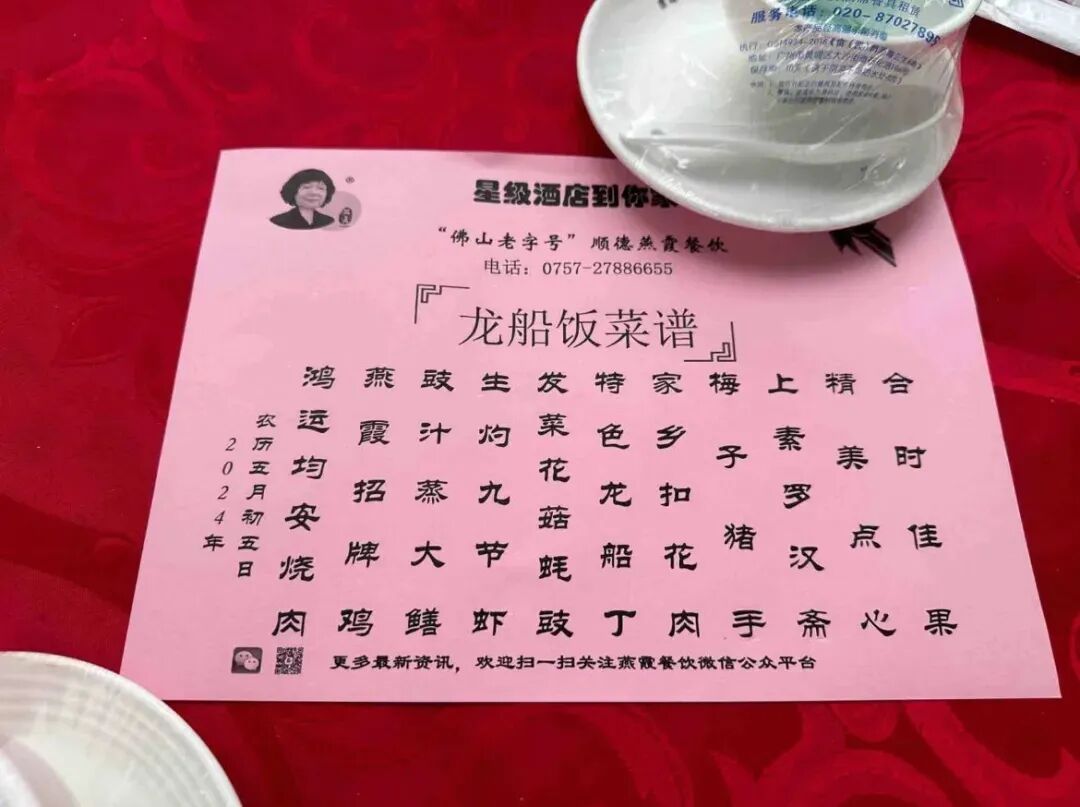 服务电话：020-87027895
星级酒店到你家
“佛山老字号”顺德燕霞餐饮
电话：0757-27886655
龙船饭菜谱
鸿运均安烧肉
燕霞招牌鸡
豉汁蒸大鳝
生灼九节虾
发菜花菇蚝豉
特色龙船丁
家乡扣花肉
梅子猪手
上素罗汉斋
精美点心
合时佳果
农历五月初五日
2024年
更多最新资讯，欢迎扫一扫关注燕霞餐饮微信公众平台